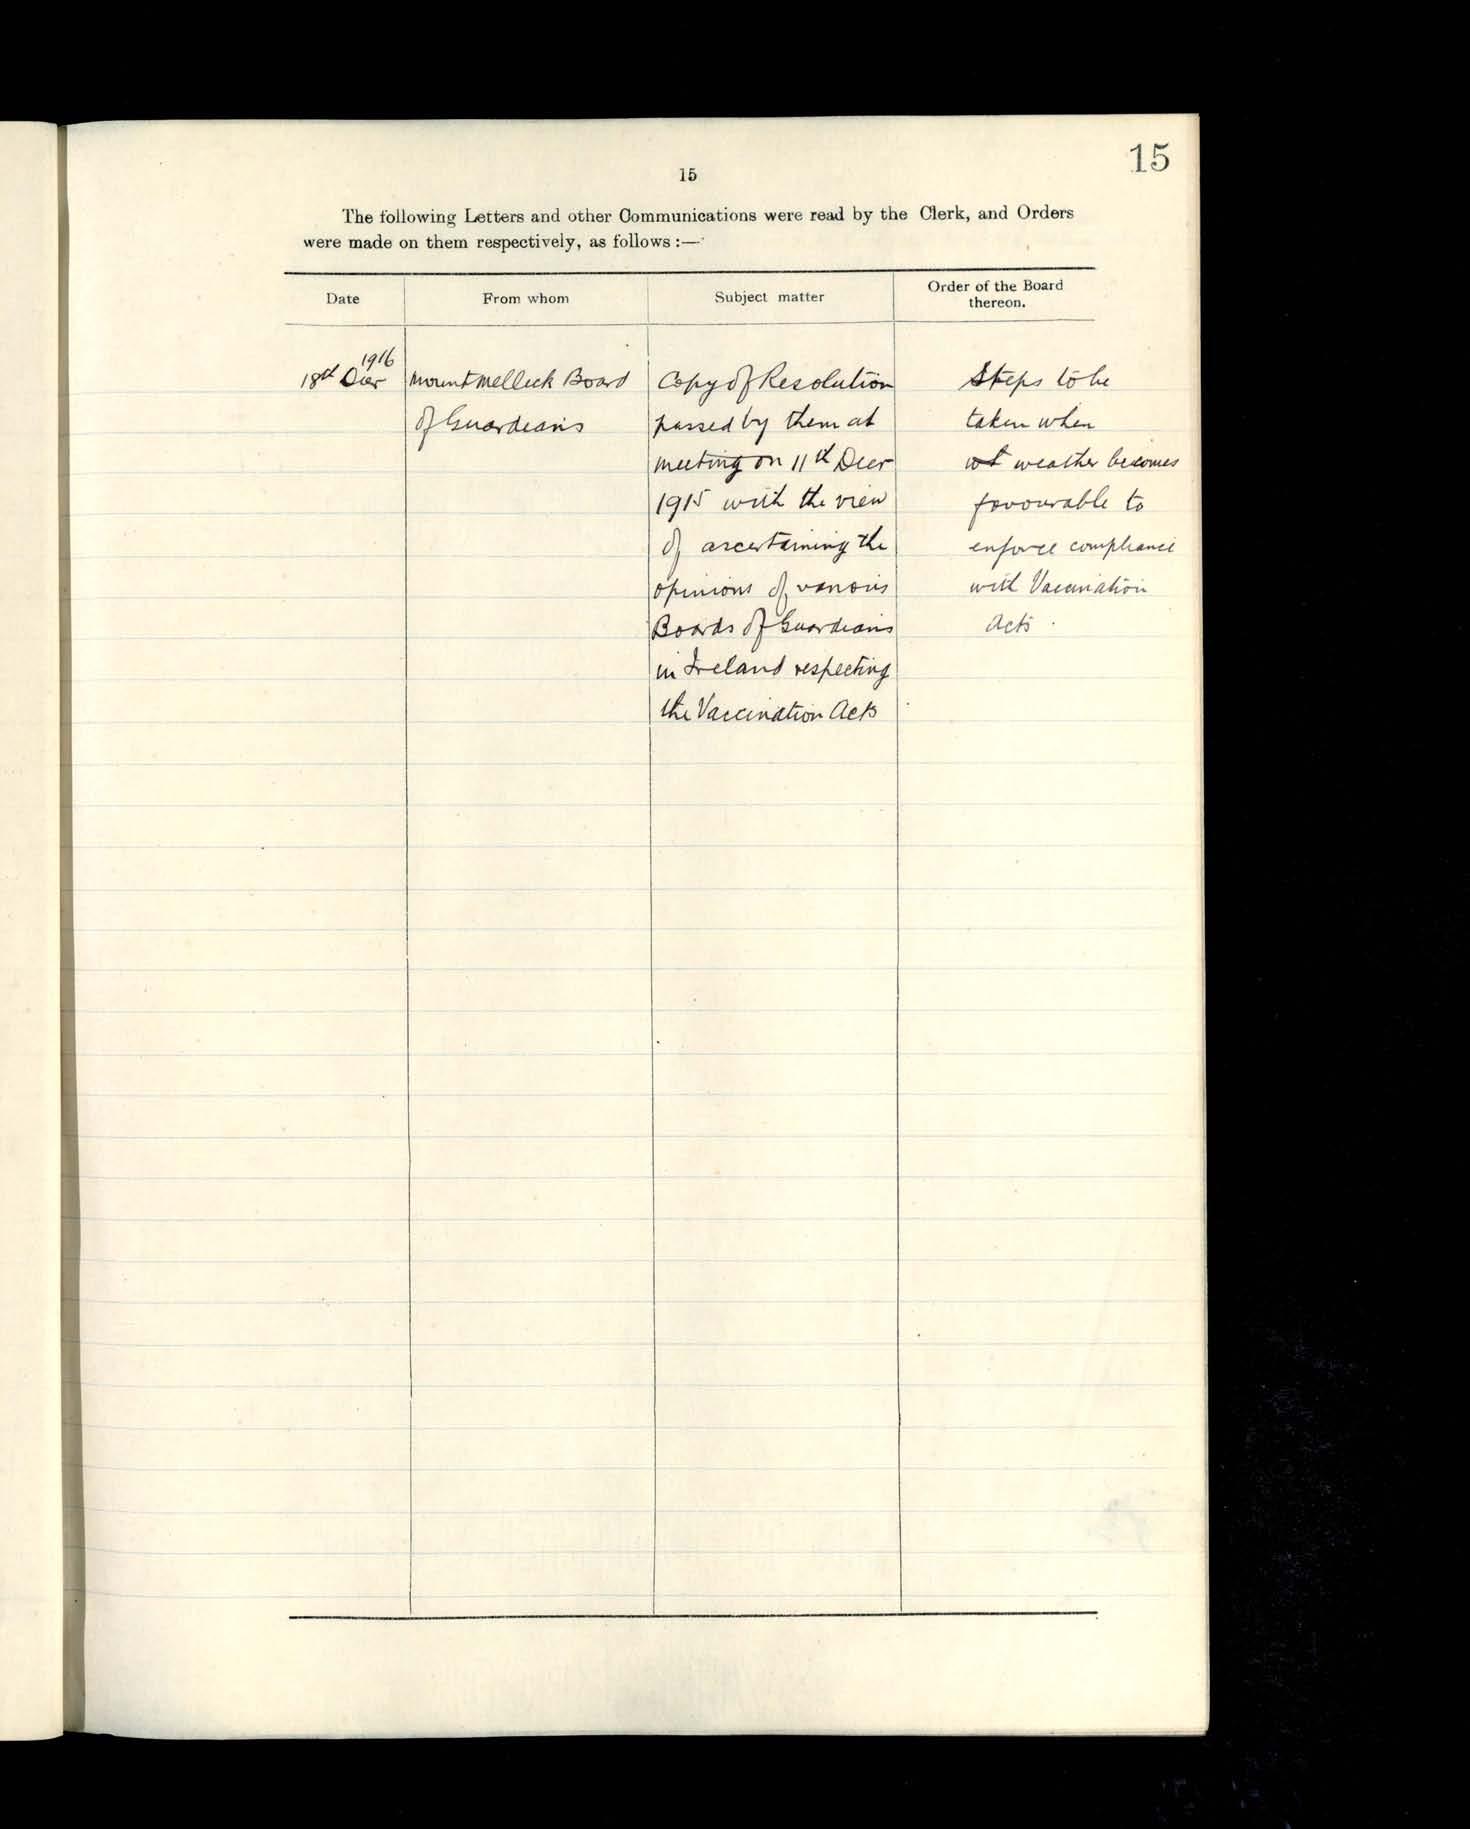 15
15
The following Letters and other Communications were read by the Clerk, and Orders
were made on them respectively, as follows :—
Date
From whom
Subject matter
Order of the Board
thereon.
1916
18th Decr
Mountmellick Board
of Guardians
Copy of Resolution
passed by them at
meeting on 11th Decr
1915 with the view
of ascertaining the
opinions of various
Boards of Guardians
in Ireland respecting
the Vaccination Acts
Steps to be
taken when
weather becomes
favourable to
enforce compliance
with Vaccination
Acts.